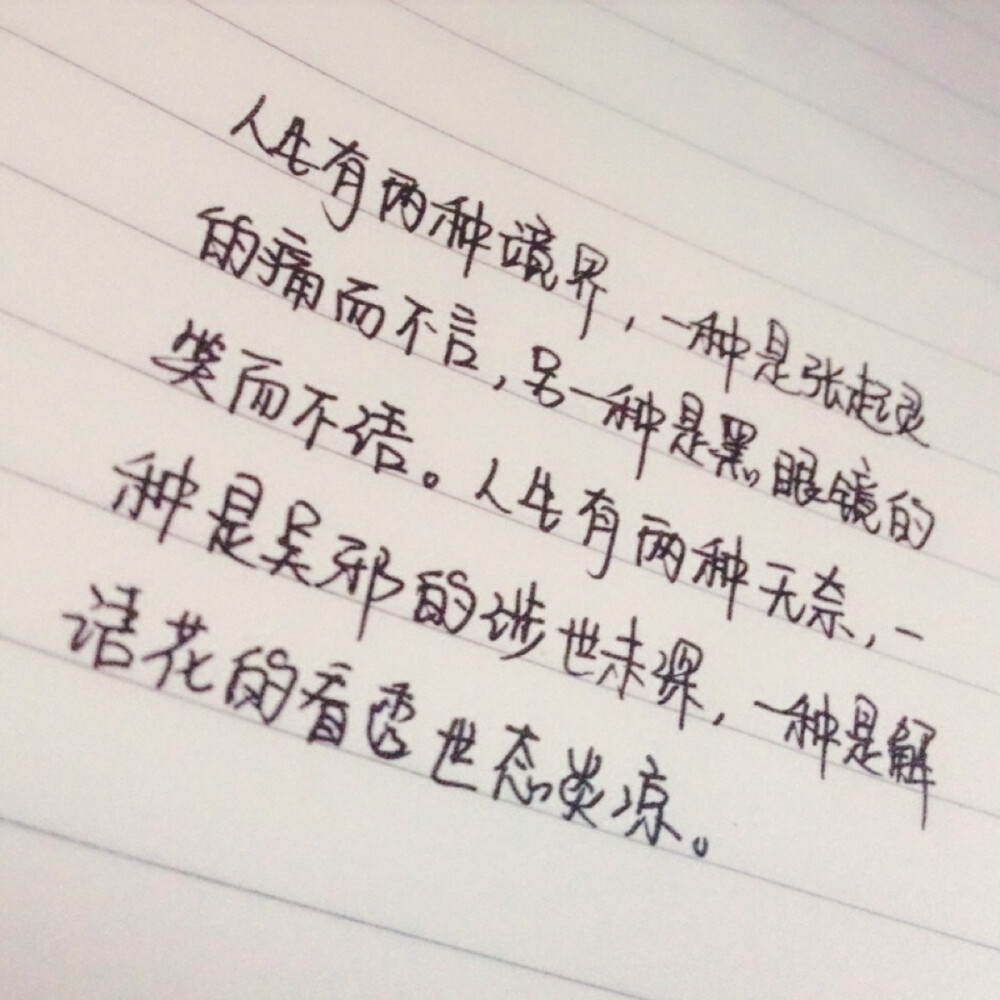 人生有两种境界，一种是张起灵
的痛而不言，另一种是黑眼镜的
笑而不语。人生有两种无奈，一
种是吴邪的涉世未深，一种是解
语花的看透世态炎凉。